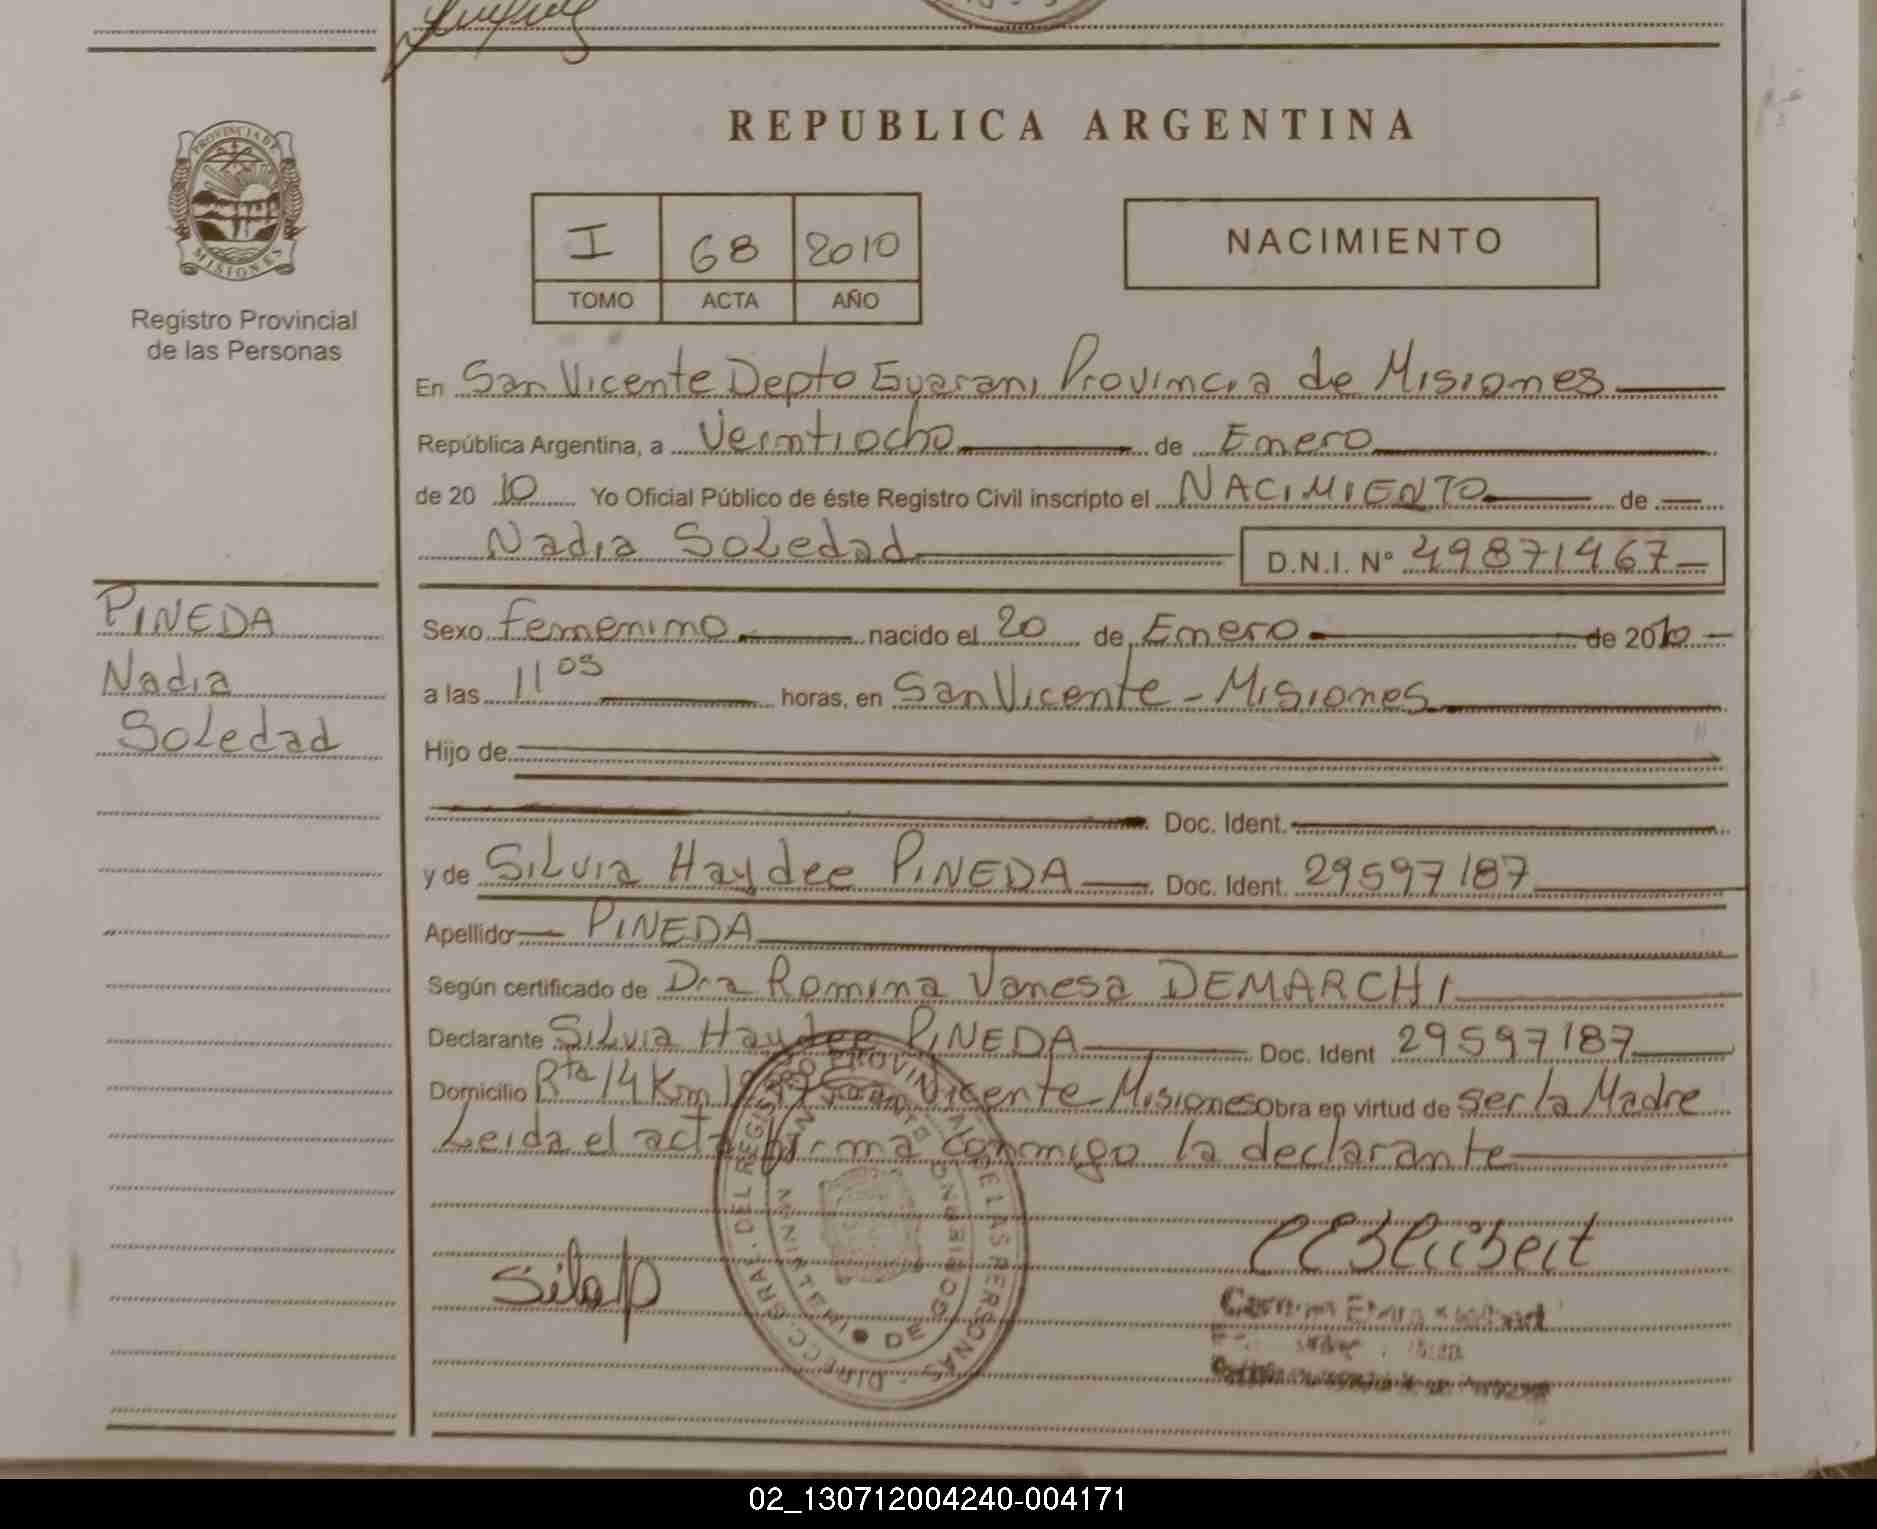 REPUBLICA ARGENTINA
PROVINCIA DE
MISIONES
Registro Provincial
de las Personas
I 68 2010
TOMO ACTA AÑO
NACIMIENTO
En San Vicente Depto Guarani Provincia de Misiones
República Argentina, a Veintiocho de Enero
de 20 10 Yo Oficial Público de éste Registro Civil inscripto el NACIMIENTO de
Nadia Soledad D.N.I. Nº 49871467
PINEDA
Nadia
Soledad
Sexo femenino nacido el 20 de Enero de 2010
a las 11 05 horas, en San Vicente - Misiones
Hijo de
Doc. Ident.
y de Silvia Haydee PINEDA Doc. Ident. 29597187
Apellido PINEDA
Según certificado de Dra Romina Vanesa DEMARCHI
Declarante Silvia Haydee PINEDA Doc. Ident 29597187
Domicilio Rta 14 Km San Vicente Misiones Obra en virtud de ser la Madre
Leida el acta firma conmigo la declarante
DEL REGISTRO PROVINCIAL DE LAS PERSONAS
02_130712004240-004171